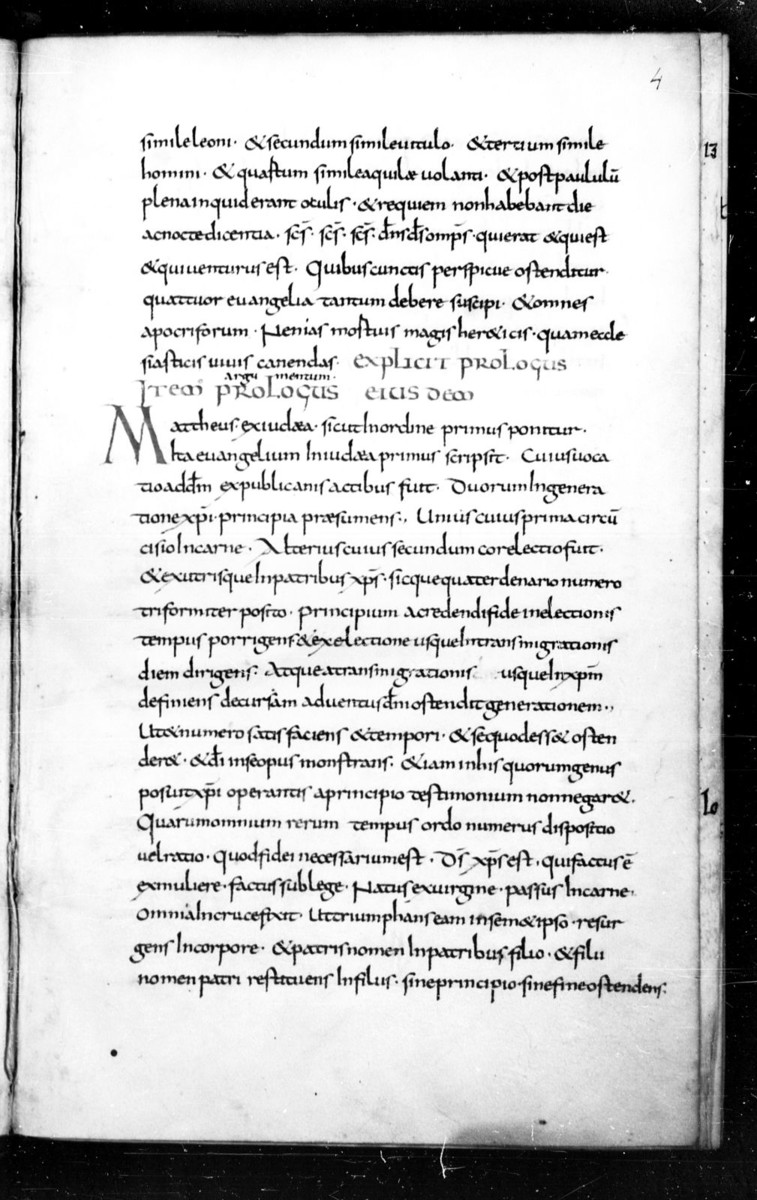 4
simile leoni· & secundum simile uitulo· & tertium simile
homini· & quartum simile aquilæ uolanti· & post paululū
plena inquid erant oculis· & requiem non habebant die
ac nocte dicentia· sc̄s· sc̄s· sc̄s· dn̄s d̄s omp̄s· qui erat & qui est
& qui uenturus est· Quibus cunctis perspicue ostenditur
quattuor euangelia tantum debere suscipi· & omnes
apocriforum· Nenias mortuis magis her&icis· quam eccle
siasticis uiuis canendas· explicit prologus
argu mentum·
Item prologus eiusdem
Mattheus· ex iudæa· sicut In ordine primus ponitur·
Ita euangelium In iudæa primus scripsit· Cuius uoca
tio ad dm̄ ex publicanis actibus fuit· Duorum In genera
tione xp̄i· principia præsumens·, Unius cuius prima circū
cisio In carne· Alterius cuius secundum cor electio fuit·
& ex utrisque In patribus xp̄s· sicque quaterdenario numero
triformiter posito· principium a credendi fide in electionis
tempus porrigens· & ex electione usque In transmigrationis
diem dirigens· Atque a transmigrationis usque In xpm̄
definiens decursam aduentus dn̄i ostendit generationem·,
Ut & numero satisfaciens & tempori· & se quod ess& osten
der&· & dī in se opus monstrans· & iam in his quorum genus
posuit xp̄i operantis a principio testimonium non negar&·
Quarum omnium rerum tempus ordo numerus dispositio
uel ratio· quod fidei necessarium est· D̄s xp̄s est· qui factus ē
ex muliere· factus sub lege· Natus ex uirgine· passus In carne·
omnia In cruce fixit· Ut triumphans eam in sem&ipso· resur
gens In corpore· & patris nomen In patribus filio· & filii
nomen patri restituens In filiis· sine principio· sine fine ostendens·
13